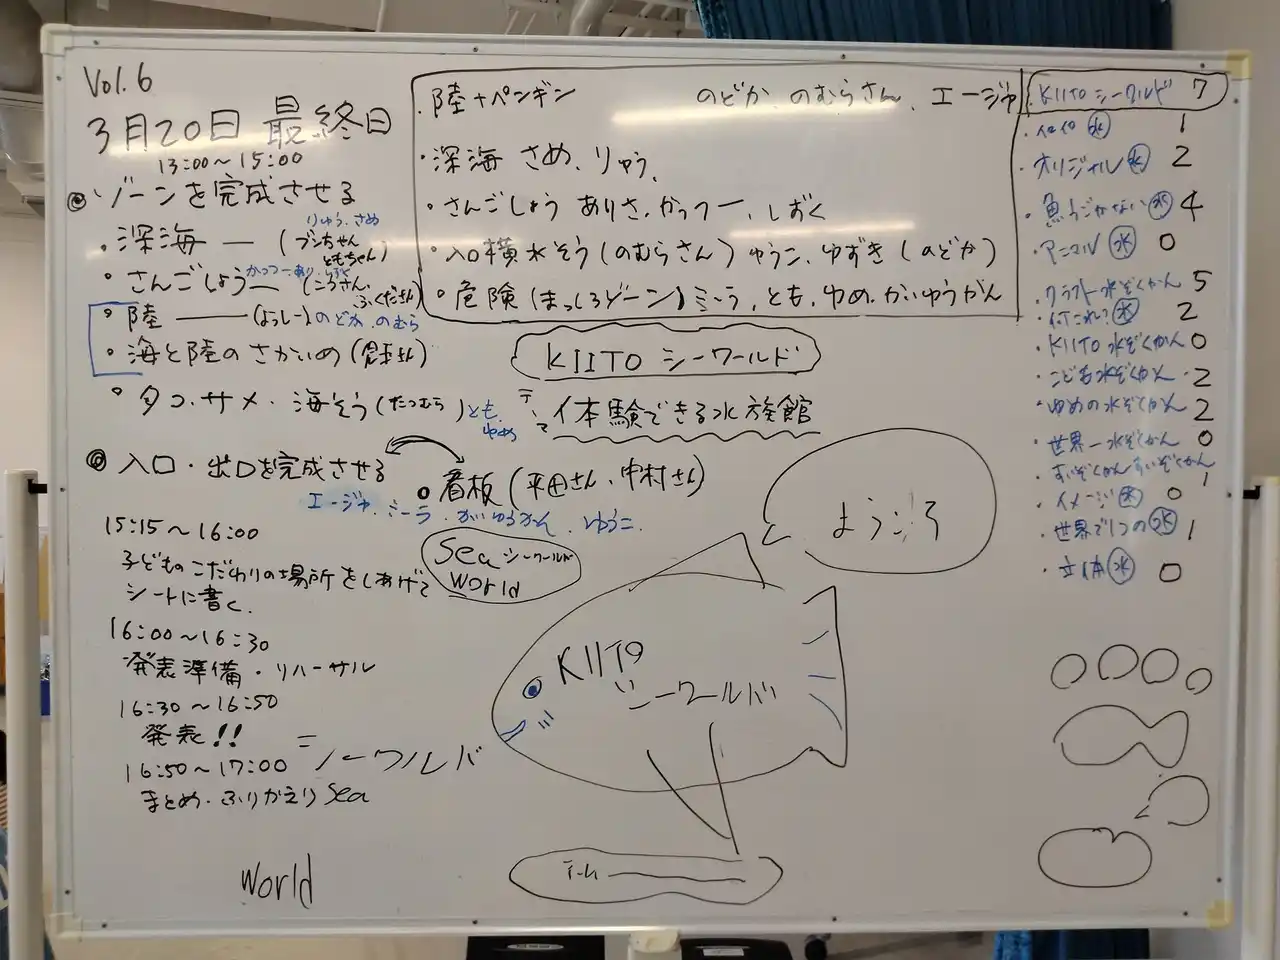 Vol.6
3月20日 最終日
13:00〜15:00
◎ゾーンを完成させる
りゅう、さめ
・深海 ー (ブンちゃん ともちゃん)
・さんごしょう ー (ころさん、ふくださん)
・陸 ー (よっしー)のどか、のむら
・海と陸のさかいめ
・タコ・サメ・海そう(たつむら)とも、ゆめ
◎入口・出口を完成させる
○看板(平田さん、中村さん)
エージャ、ミーラ、かいゆうかん、ゆうこ、
15:15〜16:00
子どものこだわりの場所をしあげて
シートに書く、
16:00〜16:30
発表準備・リハーサル
16:30〜16:50
発表!!
16:50〜17:00
まとめ・ふりかえり
シーワルド
Sea
World
・陸+ペンギン のどか、のむらさん、エージャ
・深海 さめ、りゅう、
・さんごしょう ありさ、かっつー、しずく
・入口横水そう(のむらさん)ゆうこ、ゆずき(のどか)
・危険(まっしろゾーン)ミーラ、とも、ゆめ、かいゆうかん
KIITO シーワールド
体験できる水族館
Sea シーワールド
World
ようこそ
KIITO
シーワールド
テーム
KIITO シーワールド 7
・イロイロ(水) 1
・オリジナル(水) 2
・魚うごかない(水) 4
・アニマル(水) 0
・クラフト水ぞくかん 5
・何これ?(水) 2
・KIITO 水ぞくかん 0
・こども水ぞくかん 2
・ゆめの水ぞくかん 2
・世界一水ぞくかん 0
・すいぞくかんすいぞくかん 1
・イメージ(水) 0
・世界で1つの(水) 1
・立体(水) 0